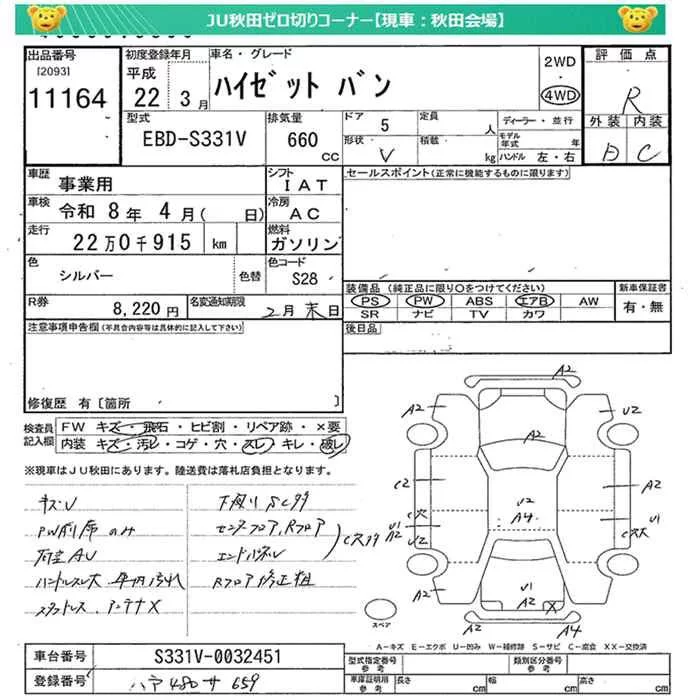 JU秋田ゼロ切りコーナー【現車：秋田会場】
出品番号
[2093]
11164
初度登録年月
平成
22 3月
車名・グレード
ハイゼット バン
2WD
4WD
評価点
R
型式
EBD-S331V
排気量
660 CC
ドア 5
形状 V
定員 人
積載 kg
ディーラー・並行
モデル年式 年
ハンドル 左・右
外装 内装
D C
車歴 事業用
シフト IAT
車検 令和 8年 4月( 日)
冷房 AC
走行 22万0千915 km
燃料 ガソリン
色 シルバー 色替
色コード S28
R券 8,220円
名変通知期限 2月末日
セールスポイント(正常に機能するものに限ります)
装備品 (純正品に限り○をつけてください)
PS PW ABS エアB AW
SR ナビ TV カワ
新車保証書
有・無
後日品
注意事項申告欄(不具合内容等は具体的に記入して下さい)
修復歴 有[箇所 ]
検査員記入欄
FW キズ・飛石・ヒビ割・リペア跡・×要
内装 キズ・汚レ・コゲ・穴・スレ・キレ・破レ
※現車はJU秋田にあります。陸送費は落札店負担となります。
キズU
PW前席のみ
荷室AU
ハンドルスレ大 車内汚れ
スタットレス.アンテナX
下廻りSC多
センターフロア,Rフロア
エンドパネル
C穴多
Rフロア修正粗
A2
A2
U2
A2
C2
U2
A4
A2
C穴
U1
A2
U2
U1
C穴大
A2
U1
A2
X
A2
A4
スペア
A-キズ E-エクボ U-凹み W-補修跡 S-サビ C-腐食 XX-交換済
車台番号 S331V-0032451
登録番号 ハア480サ659
型式指定番号 参考
類別区分番号 参考
車庫証明用 参考
長さ cm
幅 cm
高さ cm